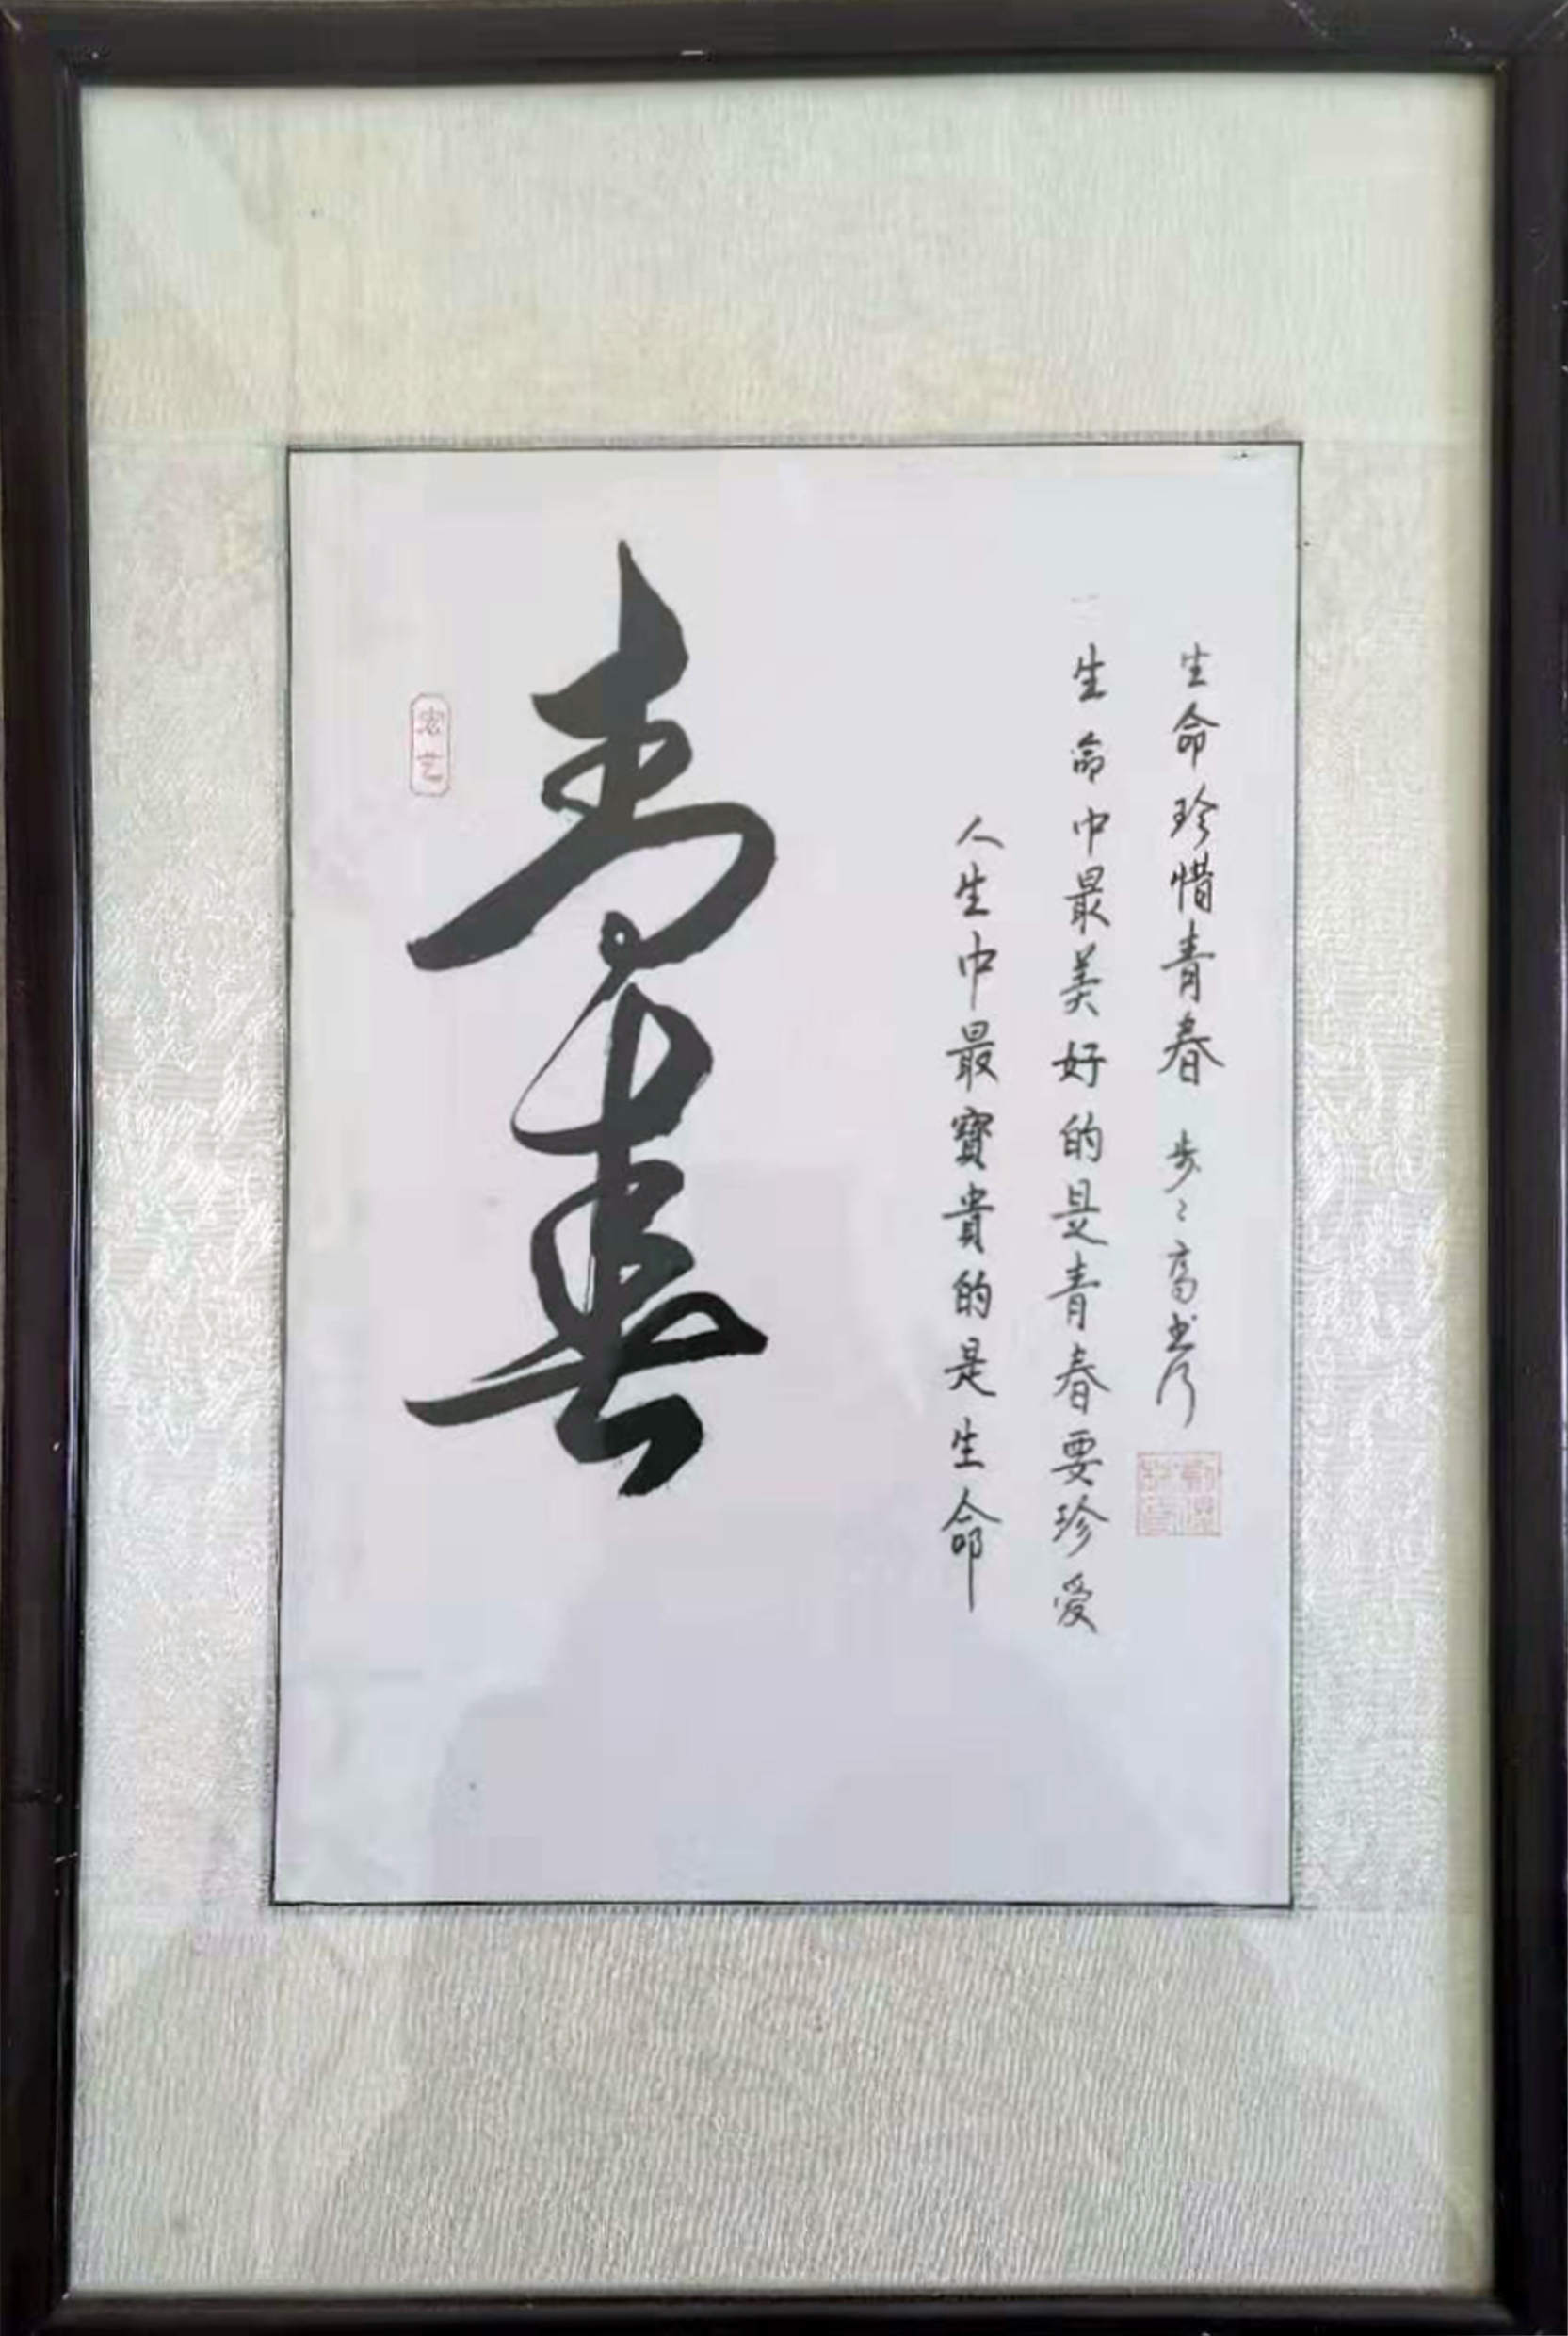 青春
人生中最寶貴的是生命
生命中最美好的是青春要珍爱
生命珍惜青春 步〻高书